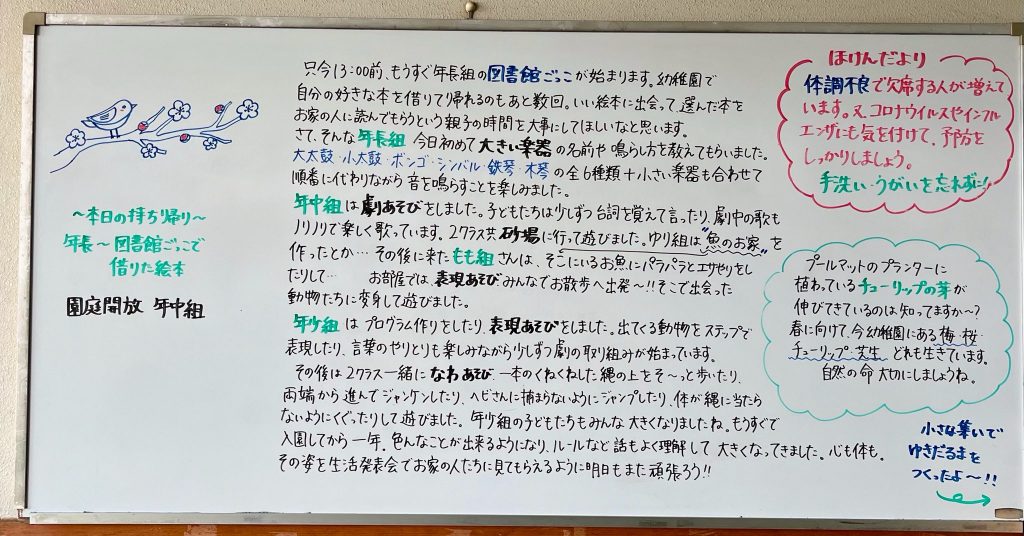 ～本日の持ち帰り～
年長～図書館ごっこで
借りた絵本
園庭開放 年中組
只今13:00前、もうすぐ年長組の図書館ごっこが始まります。幼稚園で
自分の好きな本を借りて帰れるのもあと数回。いい絵本に出会って選んだ本を
お家の人に読んでもらうという親子の時間を大事にしてほしいなと思います。
さて、そんな年長組 今日初めて大きい楽器の名前や鳴らし方を教えてもらいました。
大太鼓・小太鼓・ボンゴ・シンバル・鉄琴・木琴の全6種類+小さい楽器も合わせて
順番に代わりながら音を鳴らすことを楽しみました。
年中組は劇あそびをしました。子どもたちは少しずつ台詞を覚えて言ったり、劇中の歌も
ノリノリで楽しく歌っています。2クラス共砂場に行って遊びました。ゆり組は"魚のお家"を
作ったとか…その後に来たもも組さんは、そこにいるお魚にパラパラとエサやりをし
たりして… お部屋では、表現あそびみんなでお散歩へ出発～!!そこで出会った
動物たちに変身して遊びました。
年少組は プログラム作りをしたり、表現あそびをしました。出てくる動物をステップで
表現したり、言葉のやりとりも楽しみながら少しずつ劇の取り組みが始まっています。
その後は2クラス一緒になわあそび、一本のくねくねした縄の上をそ～っと歩いたり、
両端から進んでジャンケンしたり、ヘビさんに捕まらないようにジャンプしたり、体が縄に当たら
ないようにくぐったりして遊びました。年少組の子どもたちもみんな大きくなりましたね。もうすぐで
入園してから一年。色んなことが出来るようになり、ルールなど話もよく理解して大きくなってきました。心も体も。
その姿を生活発表会でお家の人たちに見てもらえるように明日もまた頑張ろう!!
ほけんだより
体調不良で欠席する人が増えて
います。又、コロナウイルスやインフル
エンザにも気を付けて、予防を
しっかりしましょう。
手洗い・うがいを忘れずに!
プールマットのプランターに
植わっているチューリップの芽が
伸びてきているのは知ってますか～?
春に向けて、今幼稚園にある梅・桜・
チューリップ・芝生 どれも生きています。
自然の命 大切にしましょうね。
小さな集いで
ゆきだるまを
つくったよ～!!